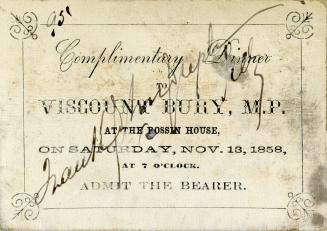 Complimentary Dinner
TO
VISCOUNT BURY, M.P.
AT THE ROSSIN HOUSE,
ON SATURDAY, NOV. 13, 1858,
AT 7 O'CLOCK.
ADMIT THE BEARER.